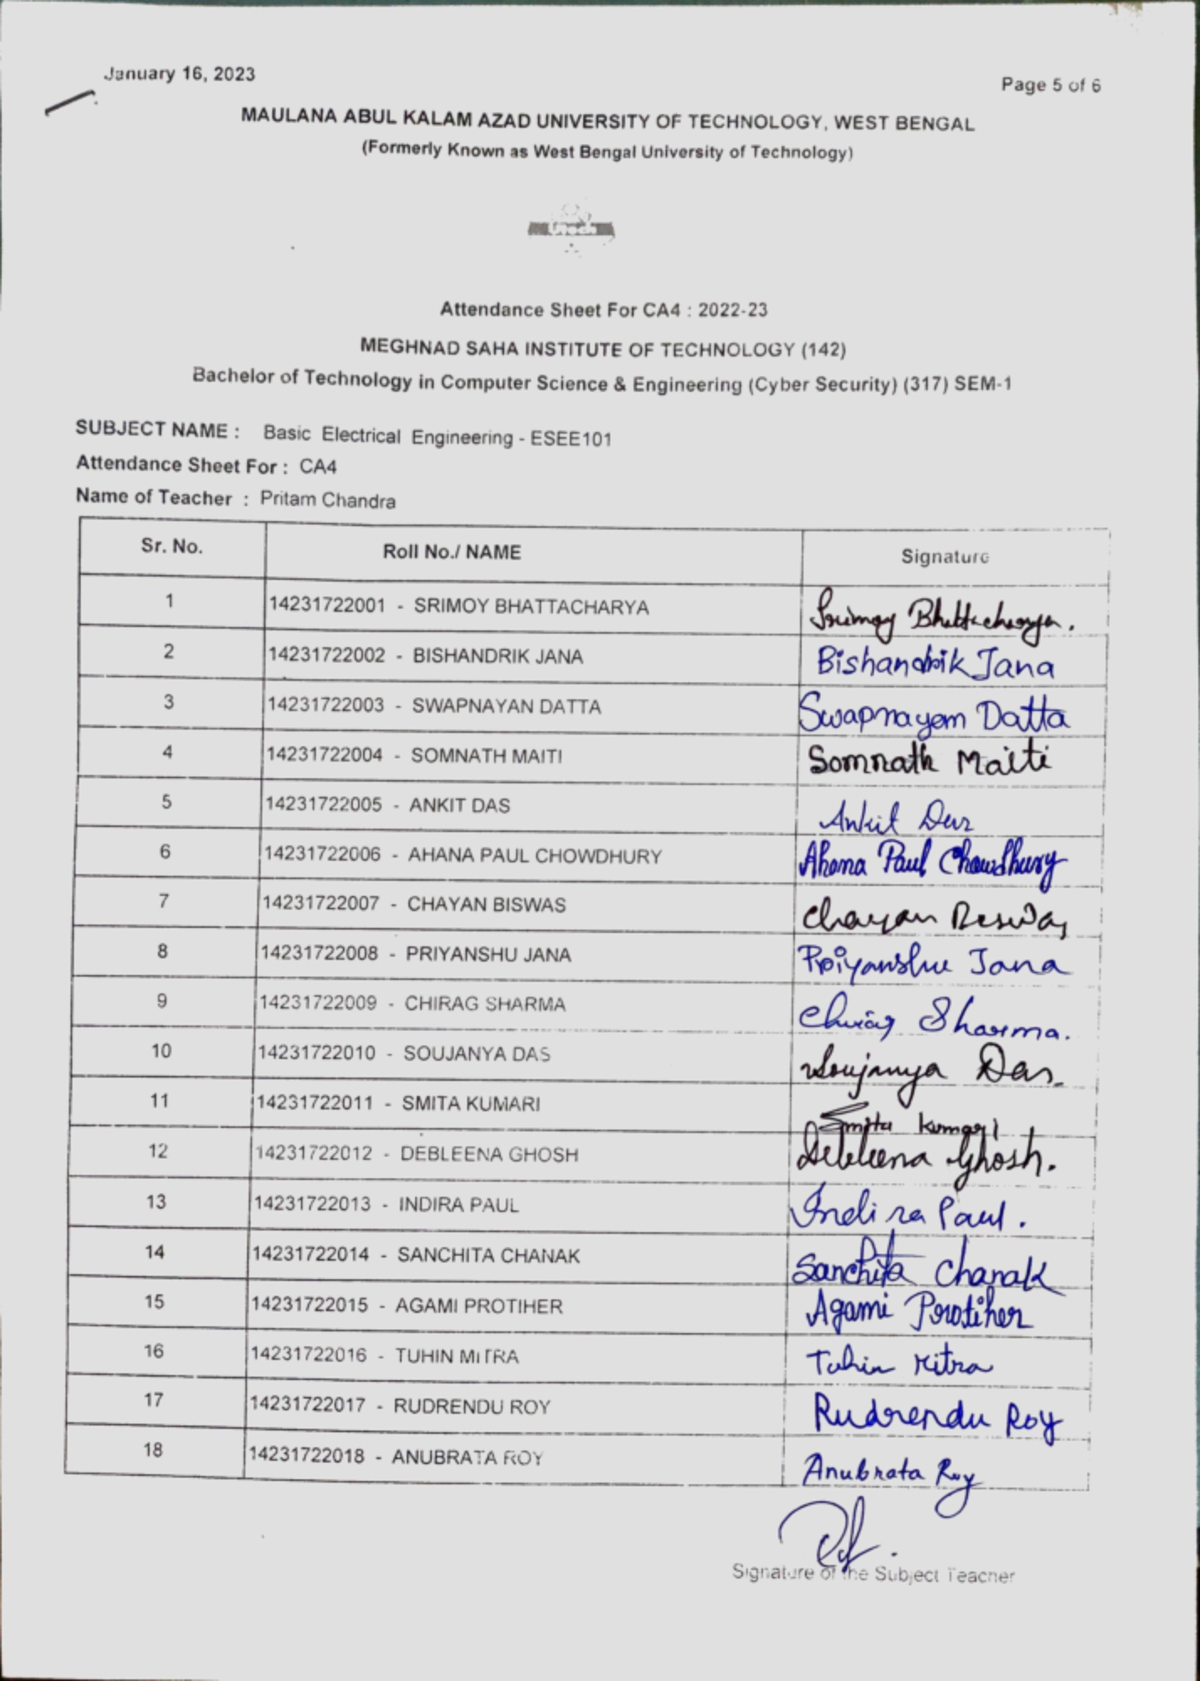 January 16, 2023
Page 5 of 6
MAULANA ABUL KALAM AZAD UNIVERSITY OF TECHNOLOGY, WEST BENGAL
(Formerly Known as West Bengal University of Technology)
Utech
Attendance Sheet For CA4 : 2022-23
MEGHNAD SAHA INSTITUTE OF TECHNOLOGY (142)
Bachelor of Technology in Computer Science & Engineering (Cyber Security) (317) SEM-1
SUBJECT NAME : Basic Electrical Engineering - ESEE101
Attendance Sheet For : CA4
Name of Teacher : Pritam Chandra
Sr. No. Roll No./ NAME Signature
1 14231722001 - SRIMOY BHATTACHARYA Srimoy Bhattacharya.
2 14231722002 - BISHANDRIK JANA Bishandrik Jana
3 14231722003 - SWAPNAYAN DATTA Swapnayan Datta
4 14231722004 - SOMNATH MAITI Somnath Maiti
5 14231722005 - ANKIT DAS Ankit Das
6 14231722006 - AHANA PAUL CHOWDHURY Ahana Paul Chowdhury
7 14231722007 - CHAYAN BISWAS Chayan Biswas
8 14231722008 - PRIYANSHU JANA Priyanshu Jana
9 14231722009 - CHIRAG SHARMA Chirag Sharma.
10 14231722010 - SOUJANYA DAS Soujanya Das.
11 14231722011 - SMITA KUMARI Smita Kumari
12 14231722012 - DEBLEENA GHOSH Debleena Ghosh.
13 14231722013 - INDIRA PAUL Indira Paul.
14 14231722014 - SANCHITA CHANAK Sanchita Chanak
15 14231722015 - AGAMI PROTIHER Agami Protiher
16 14231722016 - TUHIN MITRA Tuhin Mitra
17 14231722017 - RUDRENDU ROY Rudrendu Roy
18 14231722018 - ANUBRATA ROY Anubrata Roy
Signature of the Subject Teacher